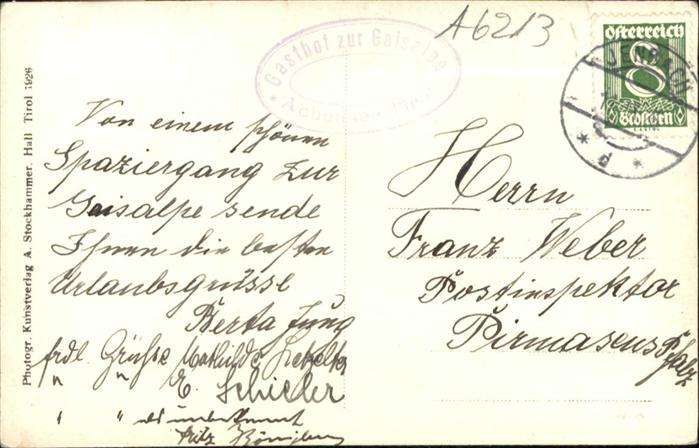 A6213
Gasthof zur Gaisalpe
Österreich
8
Groschen
JENBACH
d
Photogr. Kunstverlag A. Stockhammer, Hall Tirol 1926
Von einem schönen
Spaziergang zur
Gaisalpe sende
Ihnen die besten
Urlaubsgrüsse
Berta Jung
frdl. Grüße Mathilde
" " E. Schieler
" " als unbekannt
Fritz
Herrn
Franz Weber
Postinspektor
Pirmasens
Pfalz